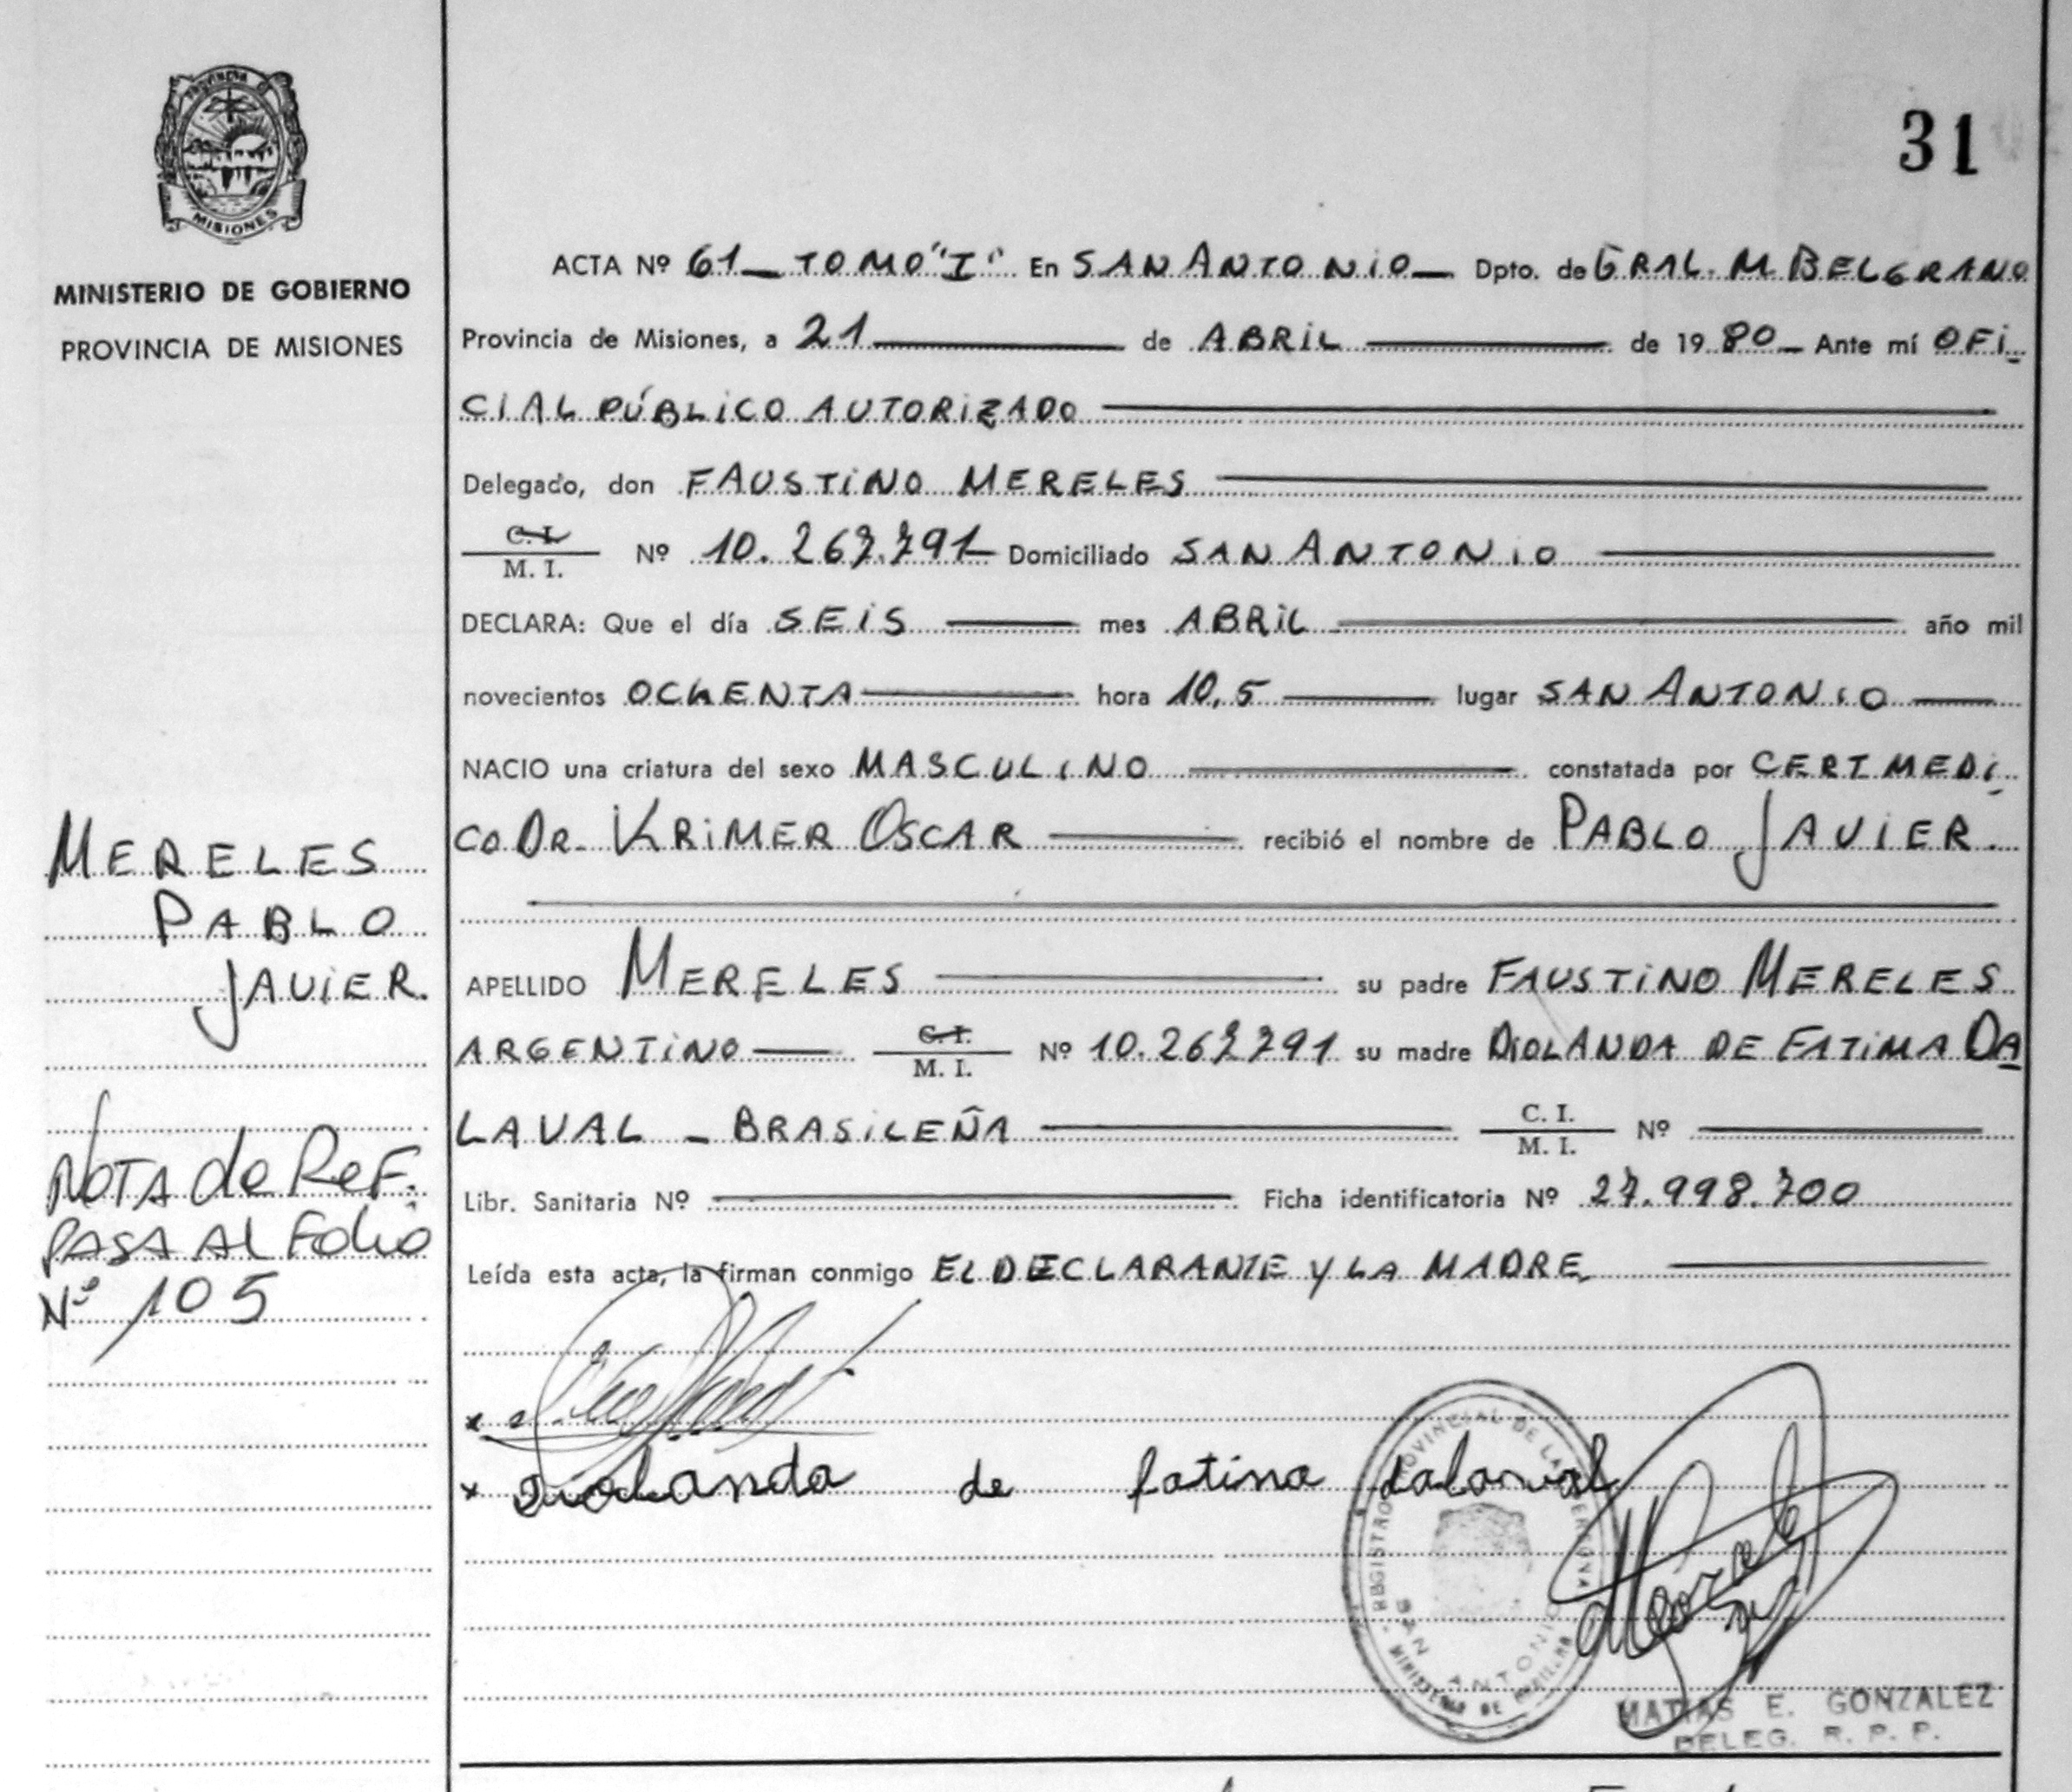 PROVINCIA D
MISIONES
MINISTERIO DE GOBIERNO
PROVINCIA DE MISIONES
31
ACTA Nº 61 — TOMO "I" En SAN ANTONIO — Dpto. de GRAL. M BELGRANO
Provincia de Misiones, a 21 de ABRIL de 1980 — Ante mí OFI
CIAL PÚBLICO AUTORIZADO
Delegado, don FAUSTINO MERELES
C. I.
M. I. Nº 10.267.791 Domiciliado SAN ANTONIO
DECLARA: Que el día SEIS mes ABRIL año mil
novecientos OCHENTA hora 10,5 lugar SAN ANTONIO
NACIO una criatura del sexo MASCULINO constatada por CERT MEDI
CO DR. KRIMER OSCAR recibió el nombre de PABLO JAVIER.
APELLIDO MERELES su padre FAUSTINO MERELES
ARGENTINO C. I.
M. I. Nº 10.267791 su madre DIOLANDA DE FATIMA DA
LAVAL — BRASILEÑA C. I.
M. I. Nº
Libr. Sanitaria Nº Ficha identificatoria Nº 27.998.700
Leída esta acta, la firman conmigo EL DECLARANTE Y LA MADRE
x
x Diolanda de fatima dalarval
MERELES
PABLO
JAVIER.
NOTA de ReF.
PASA AL Folio
Nº 105
REGISTRO PROVINCIAL DE LAS PERSONAS
SAN ANTONIO
MINISTERIO DE
MATIAS E. GONZALEZ
DELEG. R. P. P.